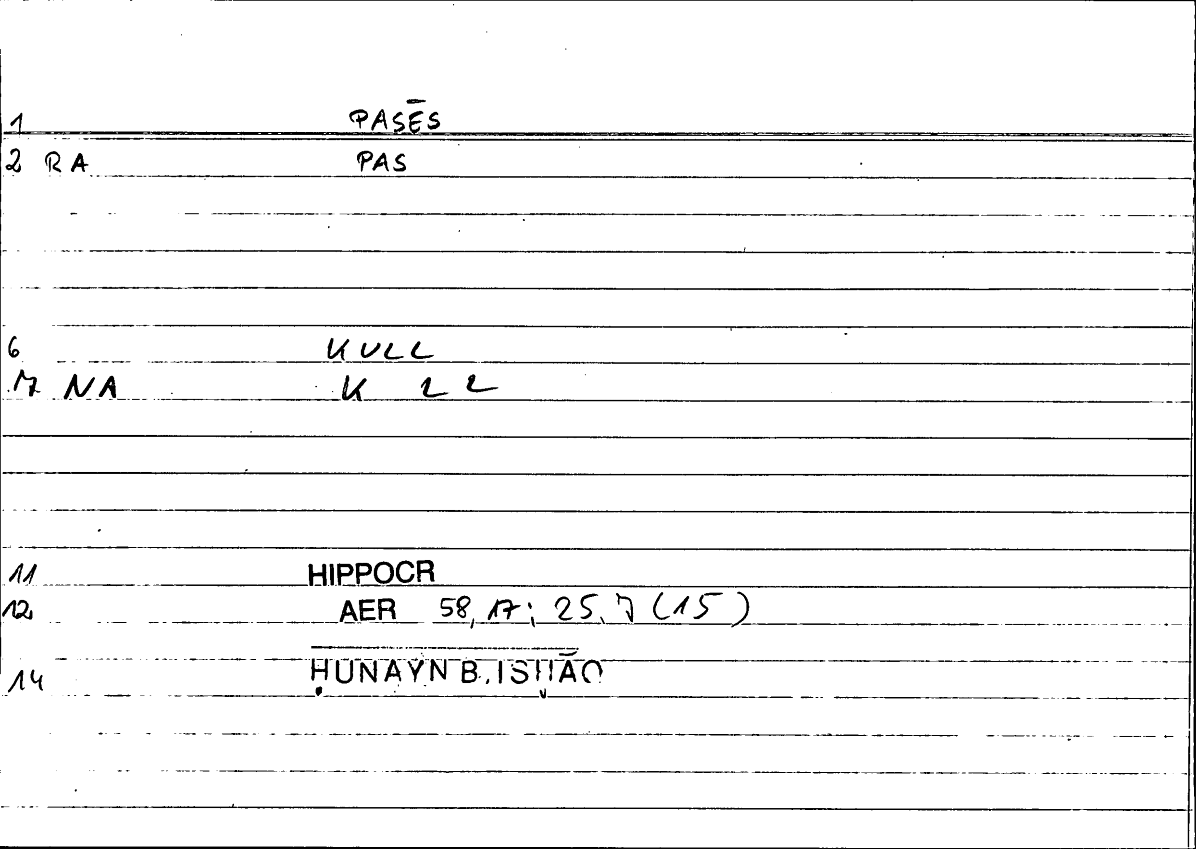 1 PASĒS
2 RA PAS
6 KULL
7 NA K LL
11 HIPPOCR
12 AER 58,17; 25,7 (15)
14 ḤUNAYN B. ISḤĀQ